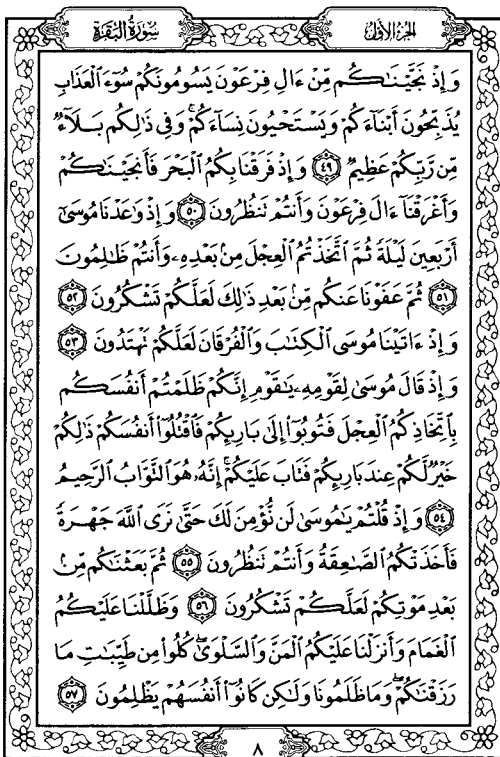 سُورَةُ البَقَرَةِ
الجُزْءُ الأَوَّلُ
وَإِذْ نَجَّيْنَـٰكُم مِّنْ ءَالِ فِرْعَوْنَ يَسُومُونَكُمْ سُوٓءَ ٱلْعَذَابِ
يُذَبِّحُونَ أَبْنَآءَكُمْ وَيَسْتَحْيُونَ نِسَآءَكُمْ ۚ وَفِى ذَٰلِكُم بَلَآءٌ
مِّن رَّبِّكُمْ عَظِيمٌ ٤٩ وَإِذْ فَرَقْنَا بِكُمُ ٱلْبَحْرَ فَأَنجَيْنَـٰكُمْ
وَأَغْرَقْنَآ ءَالَ فِرْعَوْنَ وَأَنتُمْ تَنظُرُونَ ٥٠ وَإِذْ وَٰعَدْنَا مُوسَىٰٓ
أَرْبَعِينَ لَيْلَةً ثُمَّ ٱتَّخَذْتُمُ ٱلْعِجْلَ مِنۢ بَعْدِهِۦ وَأَنتُمْ ظَـٰلِمُونَ
٥١ ثُمَّ عَفَوْنَا عَنكُم مِّنۢ بَعْدِ ذَٰلِكَ لَعَلَّكُمْ تَشْكُرُونَ ٥٢
وَإِذْ ءَاتَيْنَا مُوسَى ٱلْكِتَـٰبَ وَٱلْفُرْقَانَ لَعَلَّكُمْ تَهْتَدُونَ ٥٣
وَإِذْ قَالَ مُوسَىٰ لِقَوْمِهِۦ يَـٰقَوْمِ إِنَّكُمْ ظَلَمْتُمْ أَنفُسَكُم
بِٱتِّخَاذِكُمُ ٱلْعِجْلَ فَتُوبُوٓا۟ إِلَىٰ بَارِئِكُمْ فَٱقْتُلُوٓا۟ أَنفُسَكُمْ ذَٰلِكُمْ
خَيْرٌ لَّكُمْ عِندَ بَارِئِكُمْ فَتَابَ عَلَيْكُمْ ۚ إِنَّهُۥ هُوَ ٱلتَّوَّابُ ٱلرَّحِيمُ
٥٤ وَإِذْ قُلْتُمْ يَـٰمُوسَىٰ لَن نُّؤْمِنَ لَكَ حَتَّىٰ نَرَى ٱللَّهَ جَهْرَةً
فَأَخَذَتْكُمُ ٱلصَّـٰعِقَةُ وَأَنتُمْ تَنظُرُونَ ٥٥ ثُمَّ بَعَثْنَـٰكُم مِّنۢ
بَعْدِ مَوْتِكُمْ لَعَلَّكُمْ تَشْكُرُونَ ٥٦ وَظَلَّلْنَا عَلَيْكُمُ
ٱلْغَمَامَ وَأَنزَلْنَا عَلَيْكُمُ ٱلْمَنَّ وَٱلسَّلْوَىٰ ۖ كُلُوا۟ مِن طَيِّبَـٰتِ مَا
رَزَقْنَـٰكُمْ ۖ وَمَا ظَلَمُونَا وَلَـٰكِن كَانُوٓا۟ أَنفُسَهُمْ يَظْلِمُونَ ٥٧
٨